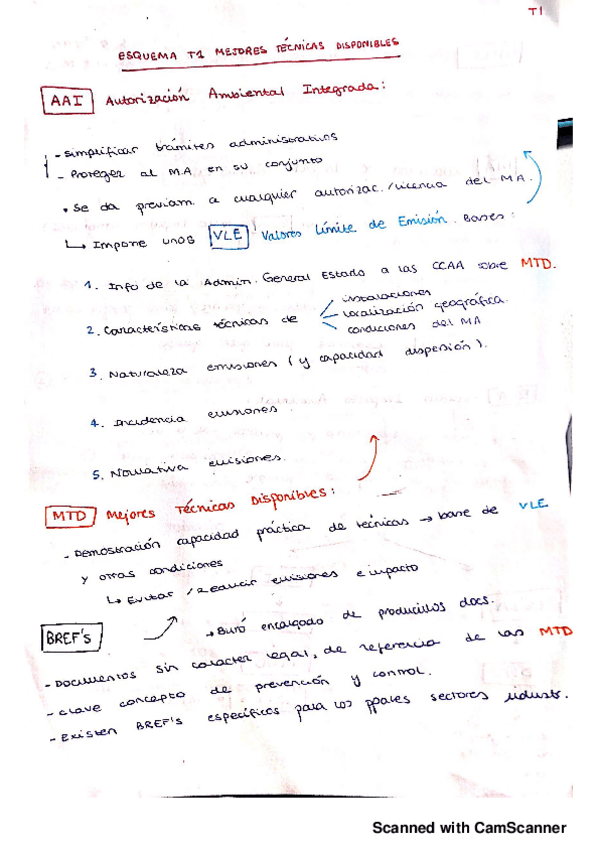 T1
ESQUEMA T1 MEJORES TÉCNICAS DISPONIBLES
AAI Autorización Ambiental Integrada:
- Simplificar trámites administrativos
- Proteger al M.A. en su conjunto
• Se da previam. a cualquier autorizac./licencia del M.A.
↳ Impone unos VLE Valores Límite de Emisión. Bases:
1. Info de la Admin. General Estado a las CCAA sobre MTD.
instalaciones
2. Características técnicas de localización geográfica.
condiciones del MA
3. Naturaleza emisiones (y capacidad dispersión).
4. Incidencia emisiones.
5. Normativa emisiones.
MTD Mejores Técnicas Disponibles:
- Demostración capacidad práctica de técnicas → base de VLE
y otras condiciones
↳ Evitar / Reducir emisiones e impacto
BREF's → Buró encargado de producir los docs.
- Documentos sin caracter legal, de referencia de las MTD
- Clave concepto de prevención y control.
- Existen BREF's específicos para los ppales sectores industr.
Scanned with CamScanner